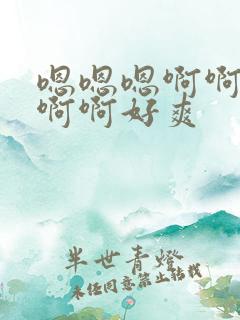 嗯嗯嗯啊啊
啊啊好爽
半世青灯
未经同意禁止转载